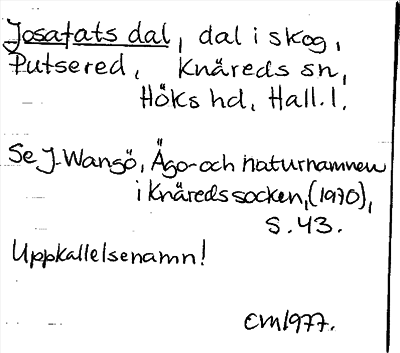 Josafats dal, dal i skog,
Putsered, Knäreds sn,
Höks hd, Hall. l.
Se J. Wangö, Ägo- och naturnamnen
i Knäreds socken, (1970),
s. 43.
Uppkallelsenamn!
CM 1977.